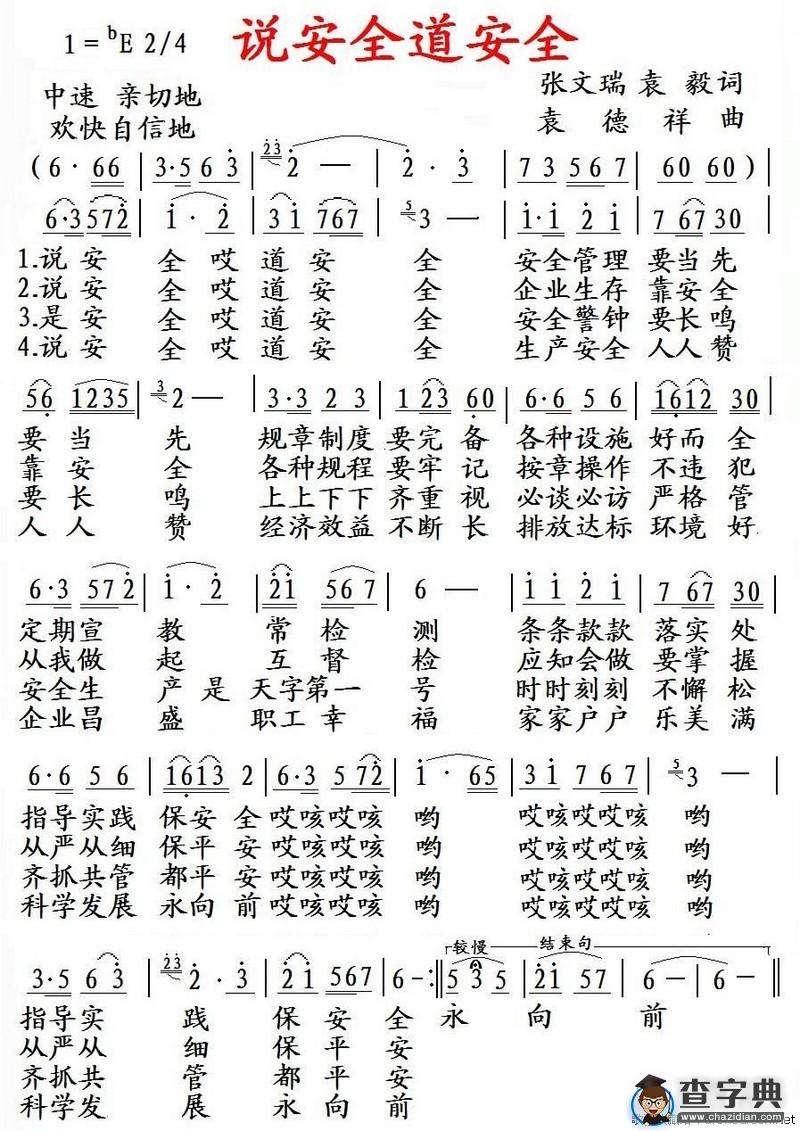 说安全道安全
1=ᵇE 2/4
中速 亲切地
欢快自信地
张文瑞 袁 毅词
袁 德 祥 曲
(6· 66 | 3·5 6 3 | 23 2 — | 2· 3 | 7 3 5 6 7 | 60 60) |
6·3 572 | 1· 2 | 3 1 767 | 5 3 — | 1·1 2 1 | 7 67 30 |
1.说安 全哎道安 全 安全管理 要当先
2.说安 全哎道安 全 企业生存 靠安全
3.是安 全哎道安 全 安全警钟 要长鸣
4.说安 全哎道安 全 生产安全 人人赞
56 1235 | 3 2 — | 3·3 2 3 | 1 23 60 | 6·6 5 6 | 1612 30 |
要 当 先 规章制度 要完备 各种设施 好而全
靠 安 全 各种规程 要牢记 按章操作 不违犯
要 长 鸣 上上下下 齐重视 必谈必访 严格管
人 人 赞 经济效益 不断长 排放达标 环境好
6·3 572 | 1· 2 | 2 1 56 7 | 6 — | 1 1 2 1 | 7 67 30 |
定期宣 教 常检 测 条条款款 落实处
从我做 起 互督 检 应知会做 要掌握
安全生 产是天字第一 号 时时刻刻 不懈松
企业昌 盛 职工幸 福 家家户户 乐美满
6·6 5 6 | 1613 2 | 3·3 572 | 1· 65 | 3 1 7 67 | 5 3 — |
指导实践 保安全哎咳哎咳 哟 哎咳哎哎咳 哟
从严从细 保平安哎咳哎咳 哟 哎咳哎哎咳 哟
齐抓共管 都平安哎咳哎咳 哟 哎咳哎哎咳 哟
科学发展 永向前哎咳哎咳 哟 哎咳哎哎咳 哟
较慢 结束句
3·5 6 3 | 23 2· 3 | 2 1 567 | 6 — :‖ 5 3 5 | 2 1 57 | 6 — | 6 — ‖
指导实 践 保安全 永 向 前
从严从 细 保平安
齐抓共 管 都平安
科学发 展 永向前
查字典
www.chazidian.com